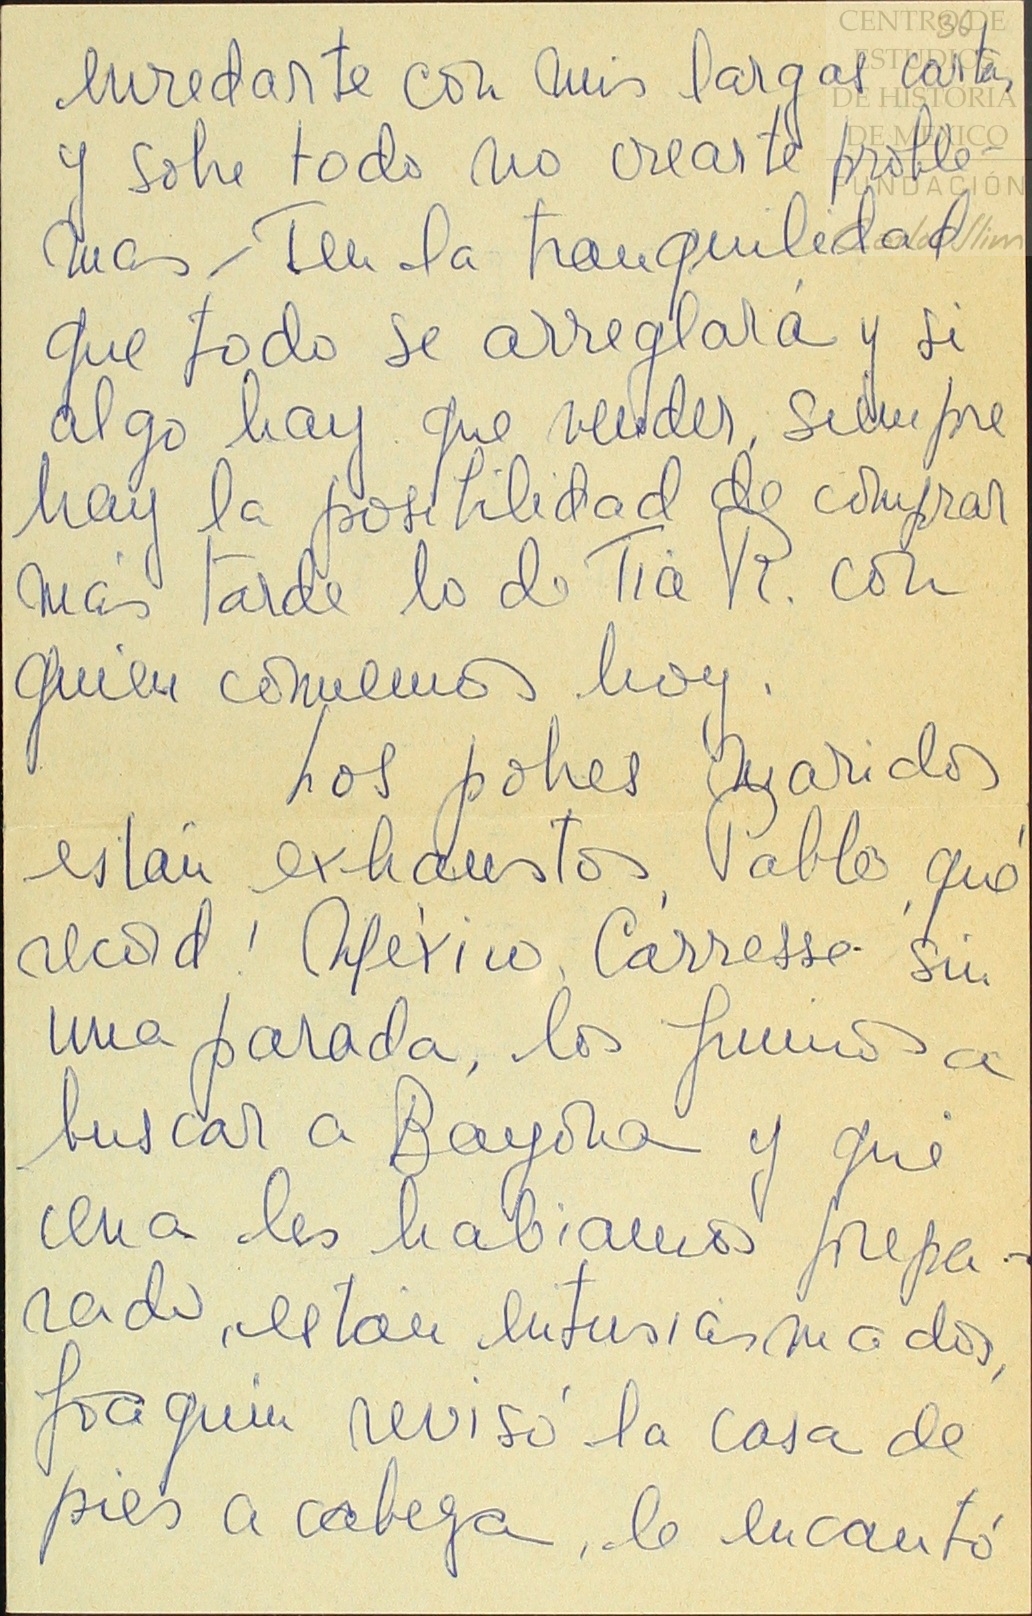 36
CENTRO DE
ESTUDIOS
DE HISTORIA
DE MEXICO
FUNDACIÓN
Carlos Slim
enredarte con mis largas cartas
y sobre todo no crearte proble-
mas, Ten la tranquilidad
que todo se arreglará y si
algo hay que vender, siempre
hay la posibilidad de comprar
más tarde lo de Tía R. con
quien comemos hoy.
Los pobres maridos
están exhaustos, Pablo, qué
record! México, Carresse sin
una parada, los fuimos a
buscar a Bayona y qué
cena les habíamos prepa-
rado, están entusiasmados,
Joaquín revisó la casa de
pies a cabeza, le encantó